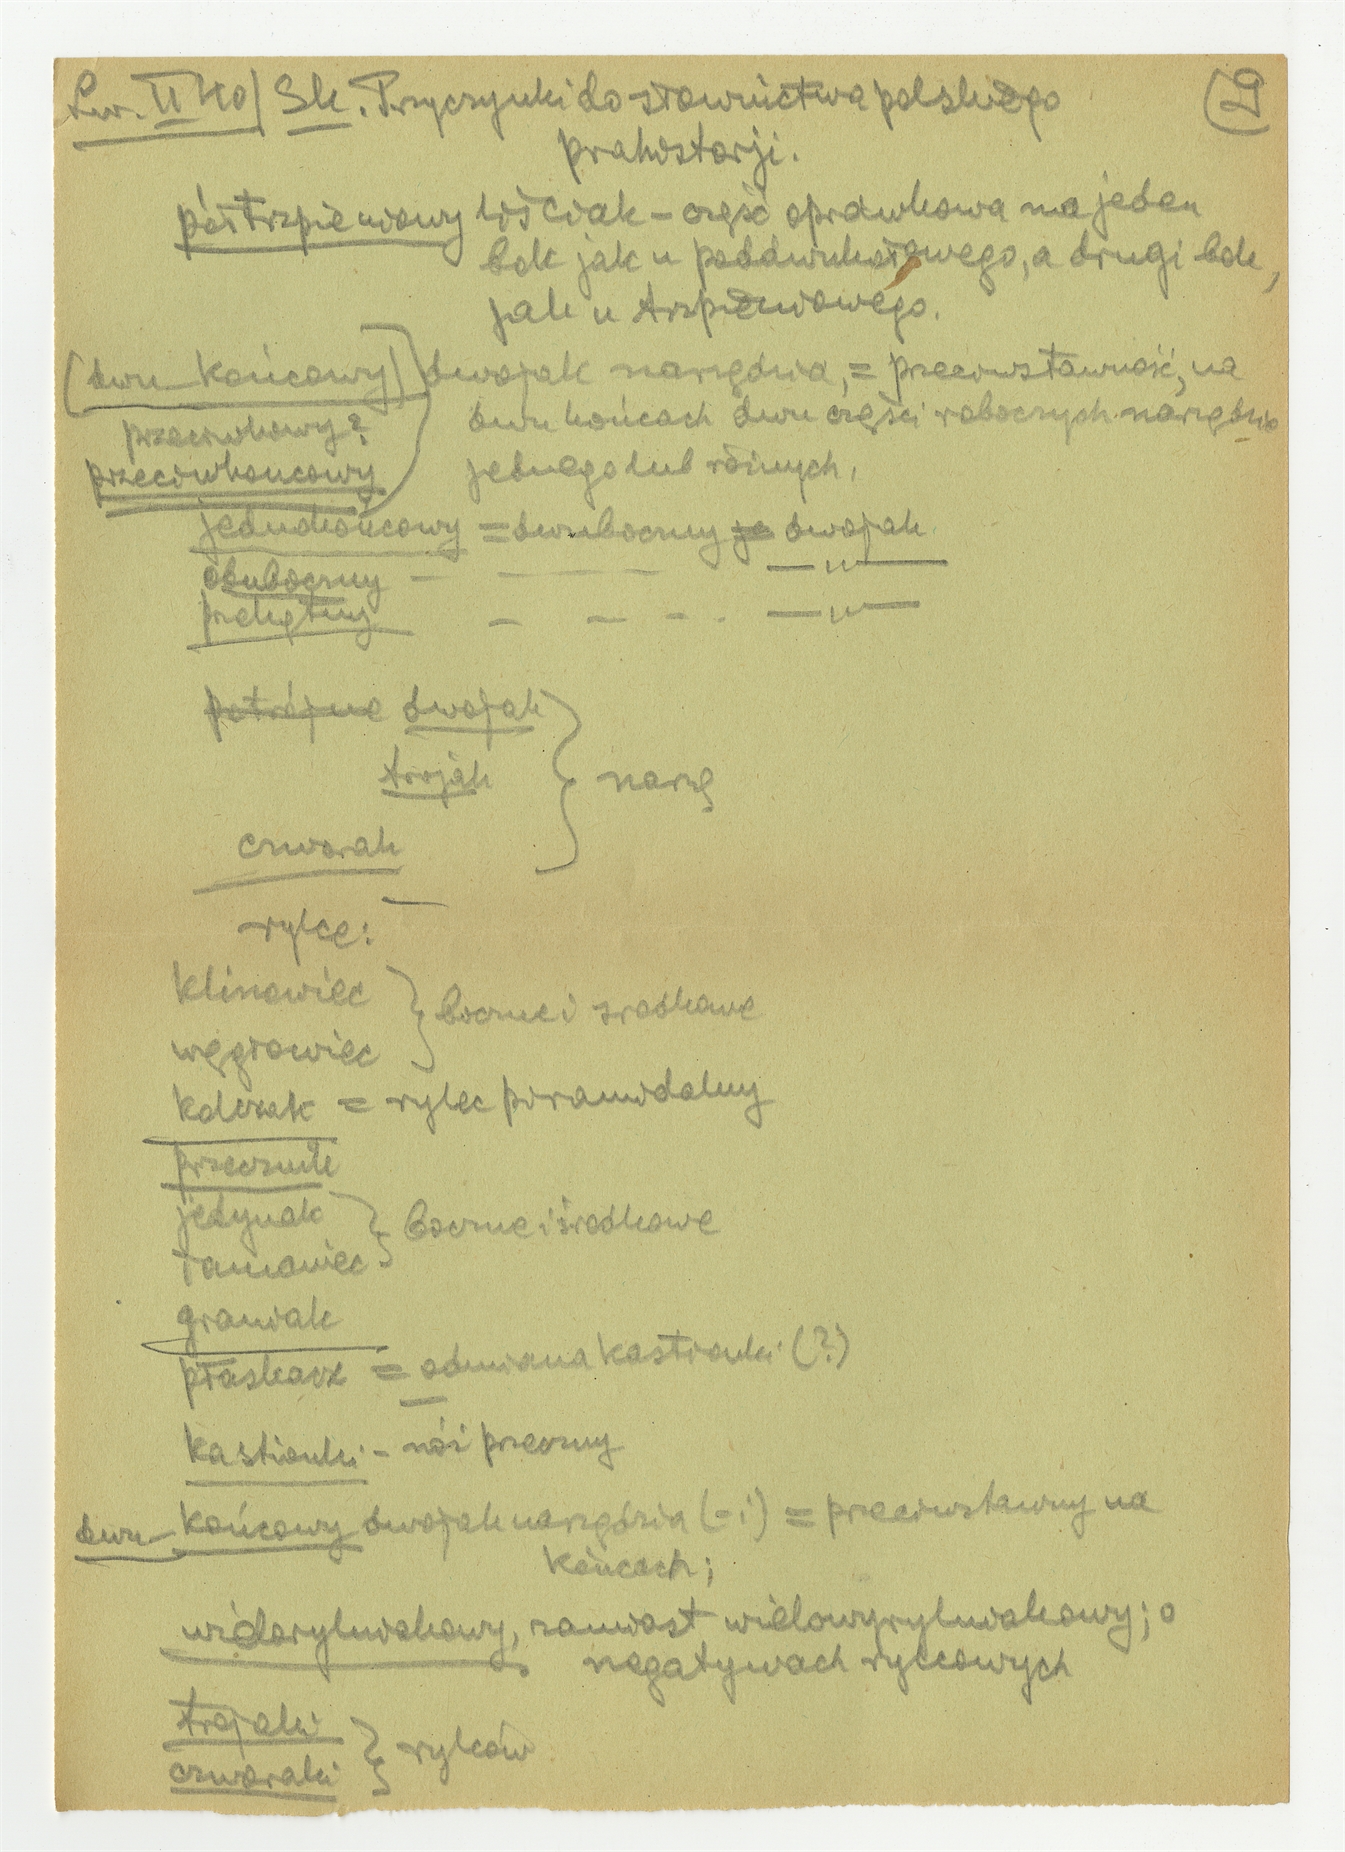 Lw. II 40/ Sk. Przyczynki do słownictwa polskiego (9)
prahistorji.
półtrzpieniowy liściak – część oprawkowa ma jeden
bok jak u poddwukątowego, a drugi bok,
jak u trzpieniowego.
(dwu-końcowy) dwojak narzędzia, = przeciwstawność, na
przeciwkowy? dwu końcach dwu części roboczych narzędzia
przeciwkońcowy jednego lub różnych.
jednokońcowy = dwuboczny dwojak
obuboczny — — — — — „ —
prekątny – – – . — „ —
potrójne dwojak
trojak } narzę
czworak
rylce:
klinowiec } boczne i srodkowe
węgłowiec
kolczak = rylec piramidalny
przecznik
jedynak } boczne i środkowe
łamaniec
graniak
płaskacz = odmiana kastionki (?)
kastionki – nóż przeczny
dwu-końcowy dwojak narzędzia (-i) = przeciwstawny na
końcach;
wielorylwiakowy, zamiast wielowyrylwiakowy; o
negatywach rylcowych
trojaki } rylców
czworaki